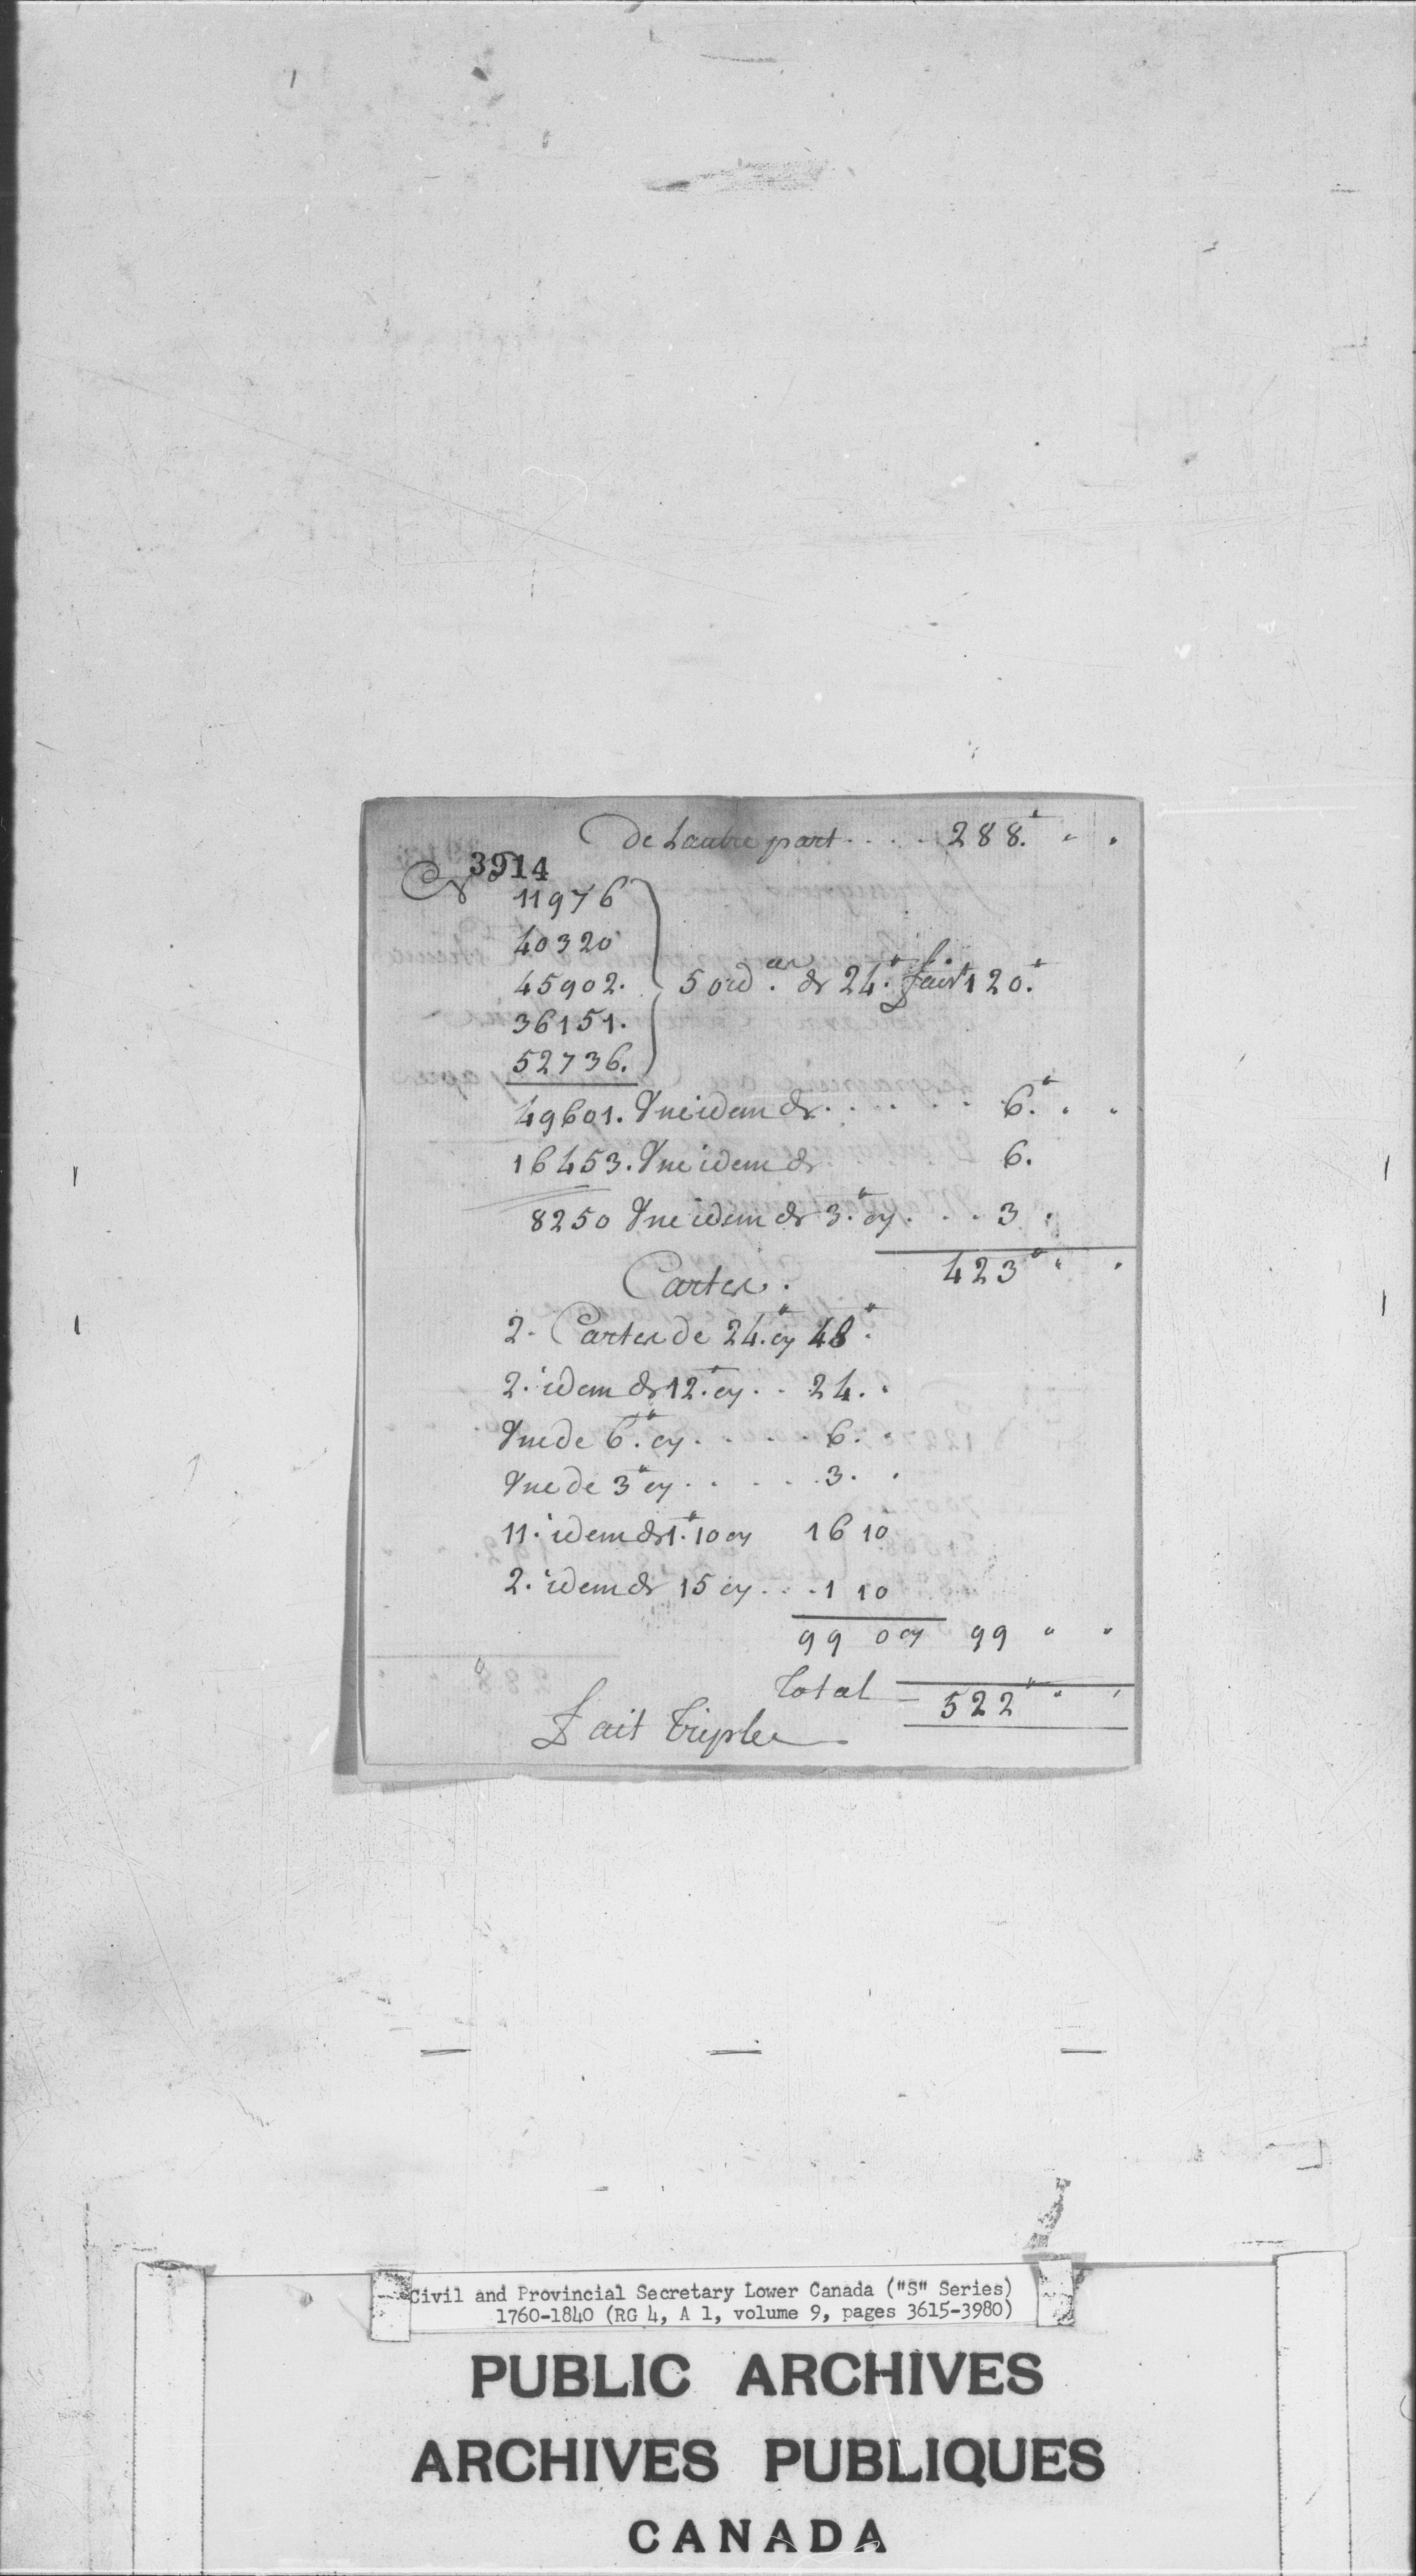 De Lautre part . . . . 288.# " "
3914
No
11976
40320
45902. 5 ord.ces de 24.# fait 120.#
36151.
52736.
49601. Une idem de . . . . . . 6.# . .
16453. Une idem de 6.
8250 Une idem de 3.# cy . . . 3 .
423# " "
Cartes.
2. Cartes de 24.# cy 48.#
2. idem de 12.# cy . . 24. .
Une de 6.# cy . . . . . 6. .
Une de 3# cy . . . . . 3. .
11. idem de 1.# 10 cy 16 10
2. idem de 15 cy . . . 1 10
99 0 cy 99 " "
Total — 522# " "
Fait Triple
Civil and Provincial Secretary Lower Canada ("S" Series)
1760-1840 (RG 4, A 1, volume 9, pages 3615-3980)
PUBLIC ARCHIVES
ARCHIVES PUBLIQUES
CANADA